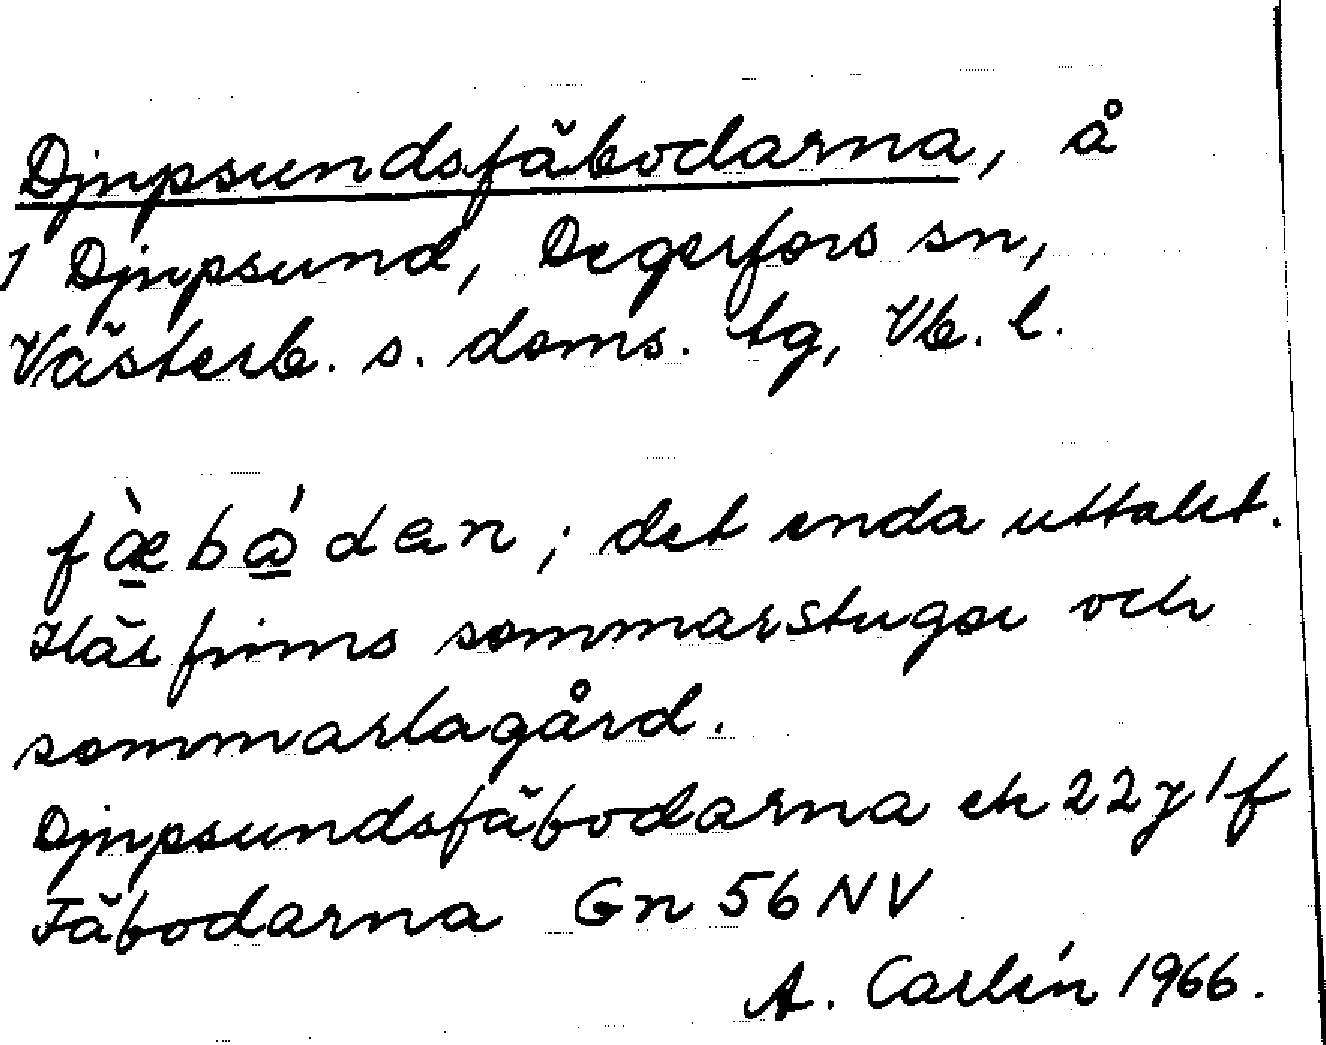 Djupsundsfäbodarna, å
1 Djupsund, Degerfors sn,
Västerb. s. doms. tg, Vb. l.
fæ̀bǻdan; det enda uttalet.
Här finns sommarstugor och
sommarlagård.
Djupsundsfäbodarna ek 22 y 1 f
Fäbodarna Gn 56 NV
A. Carlén 1966.